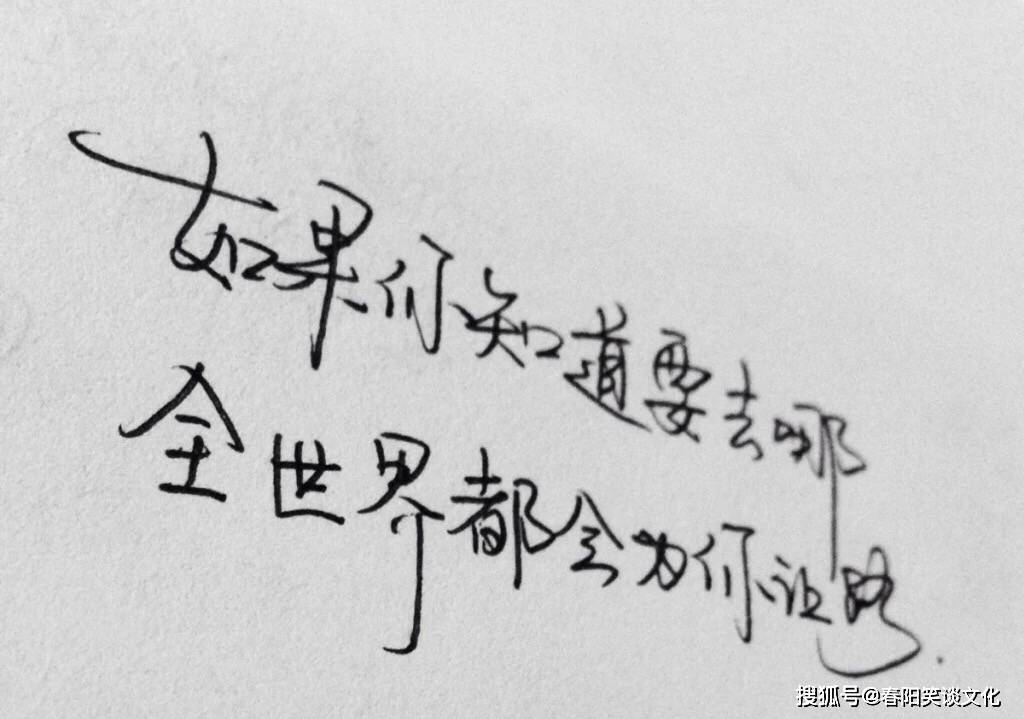 如果你知道要去哪
全世界都会为你让路.
搜狐号@春阳笑谈文化